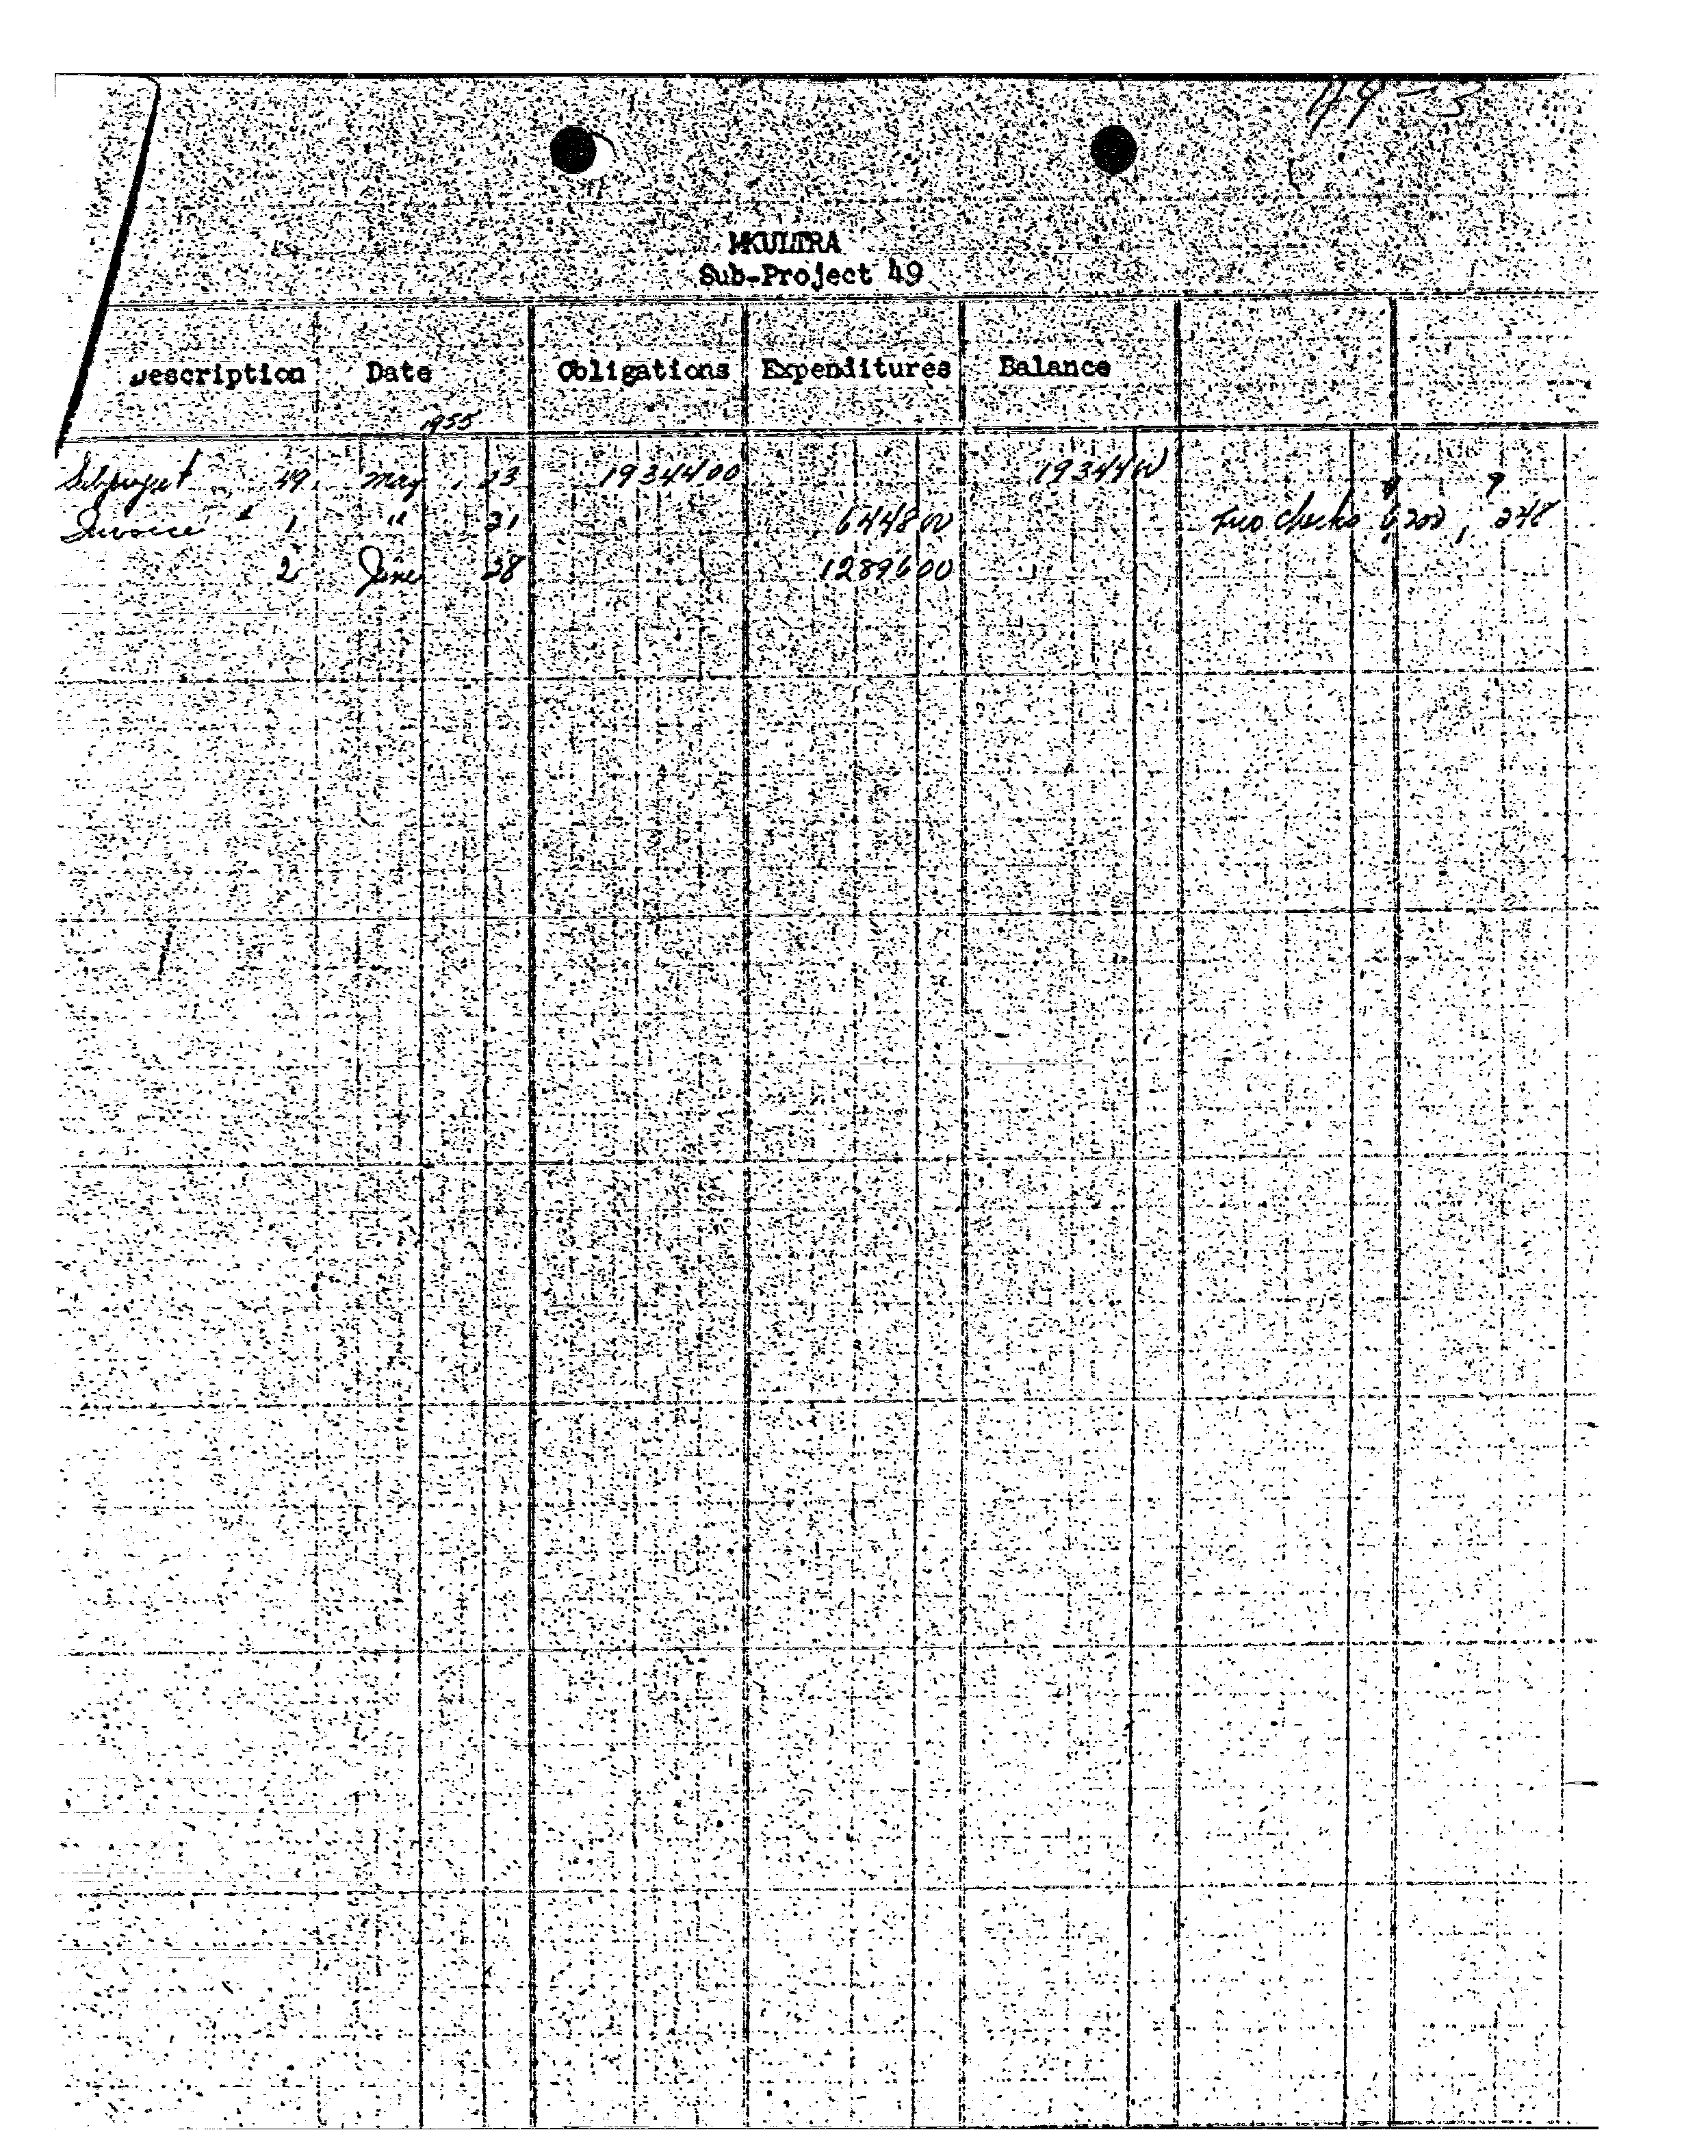 49-3
MKULTRA
Sub-Project 49
Description Date Obligations Expenditures Balance
1955
Subproject 49 May 23 19344 00 19344 00
Invoice # 1 " 31 6448 00 Two checks 6,200, 248
2 June 28 12896 00